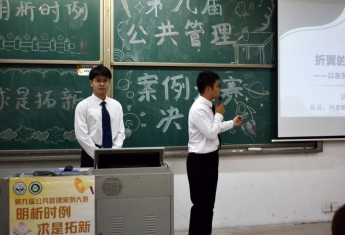 明析时例
求是拓新
第九届
公共管理
案例大赛
决
折翼的
第九届公共管理案例大赛
明析时例
求是拓新